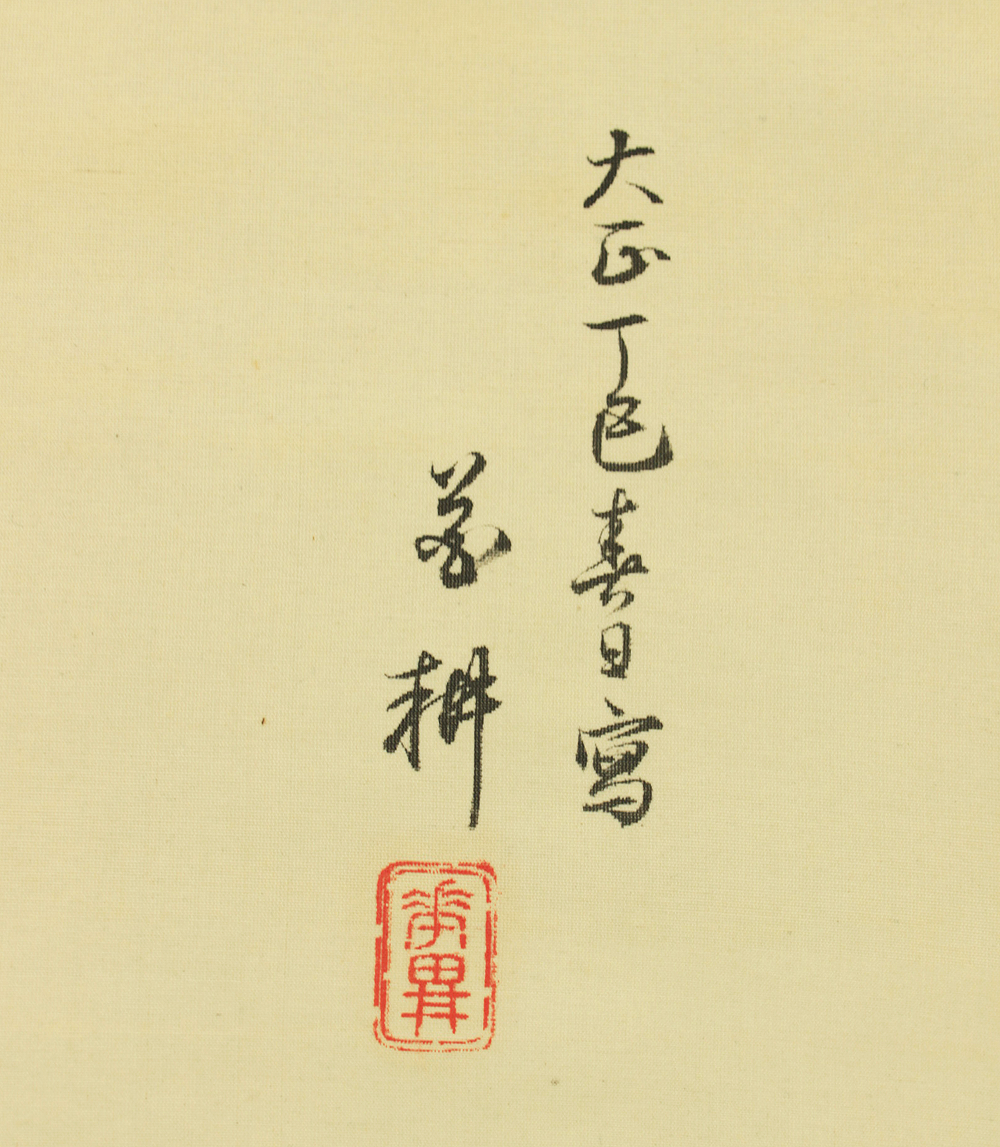 大正丁巳春日寫
耕
畊